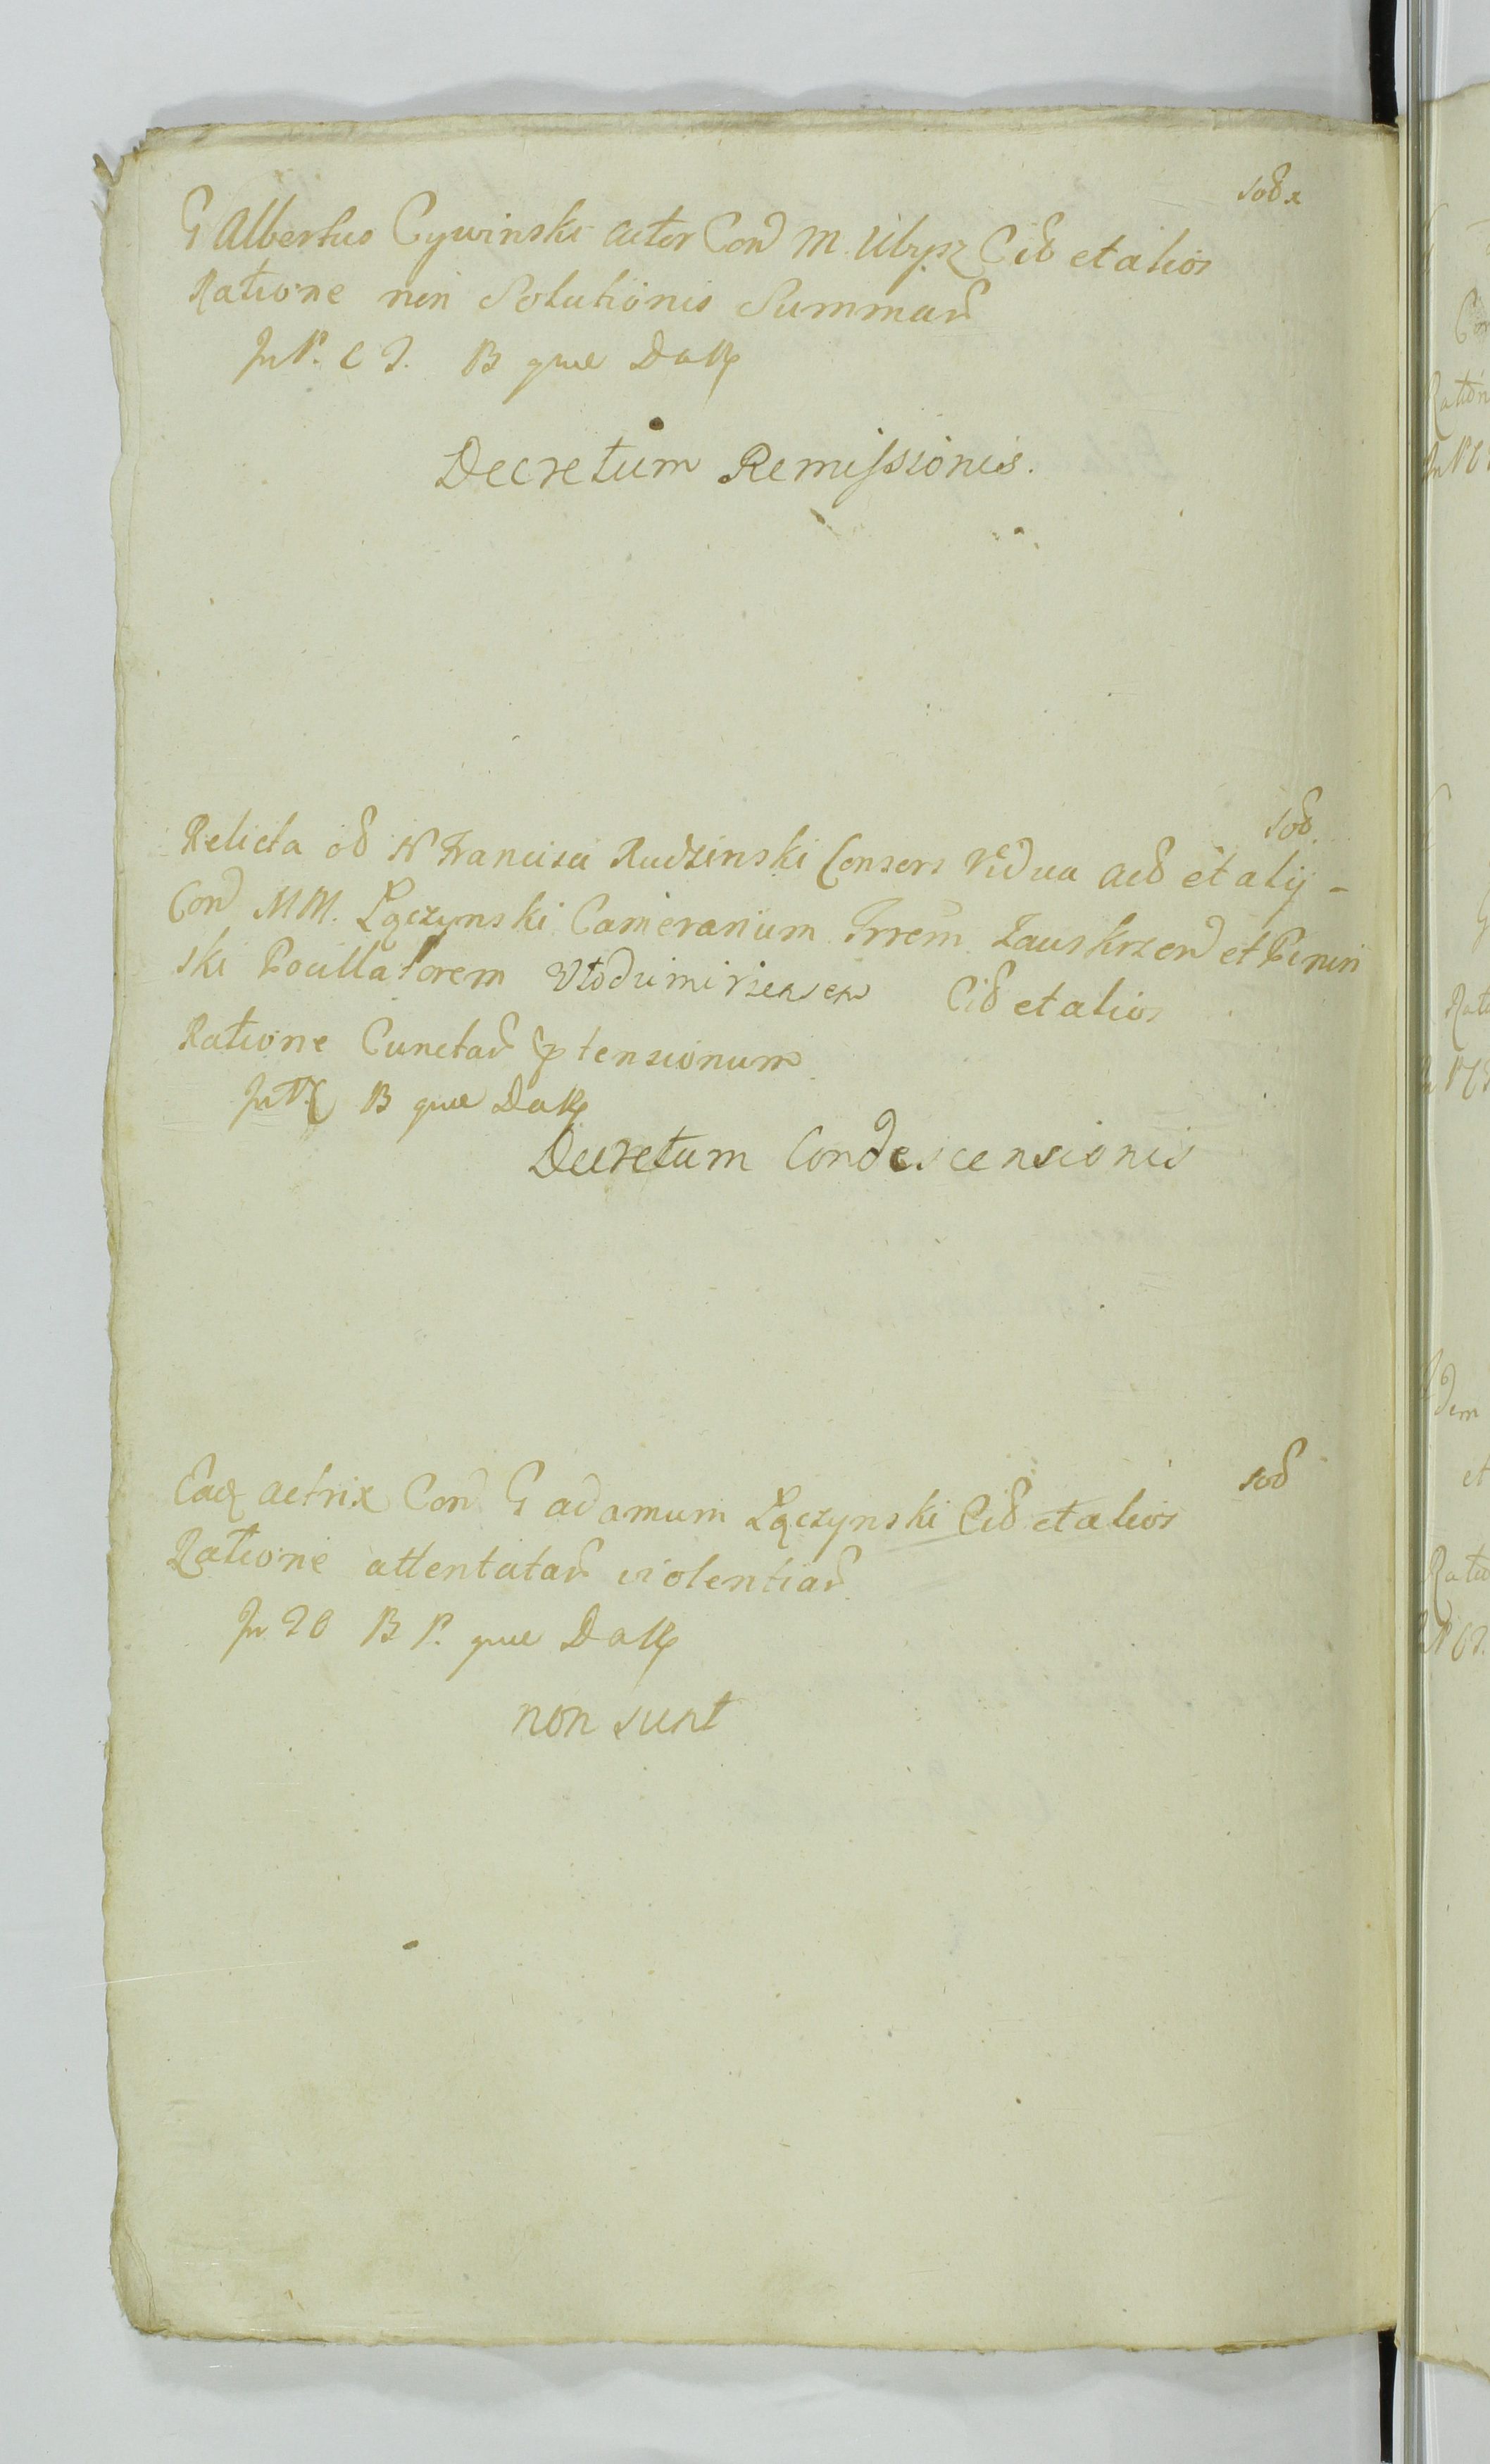 Sod x
G Albertus Cywinski actor Con M. Ubysz Cib et alios
Ratione non Solutionis Summar
In P. C T. B que Da
Decretum Remissionis.
Sod.
Relicta ob N Francisci Rudzinski Consors Vidua acb et alij -
Con MM. Łączynski Camerarium Trrem Zauskrzen et
ski Pocillatorem Włodzimiriensem Cib et alios
Ratione Cunctar ptensionum
B que Da
Decretum Condescensionis
Sod
Eaq actrix Con G adamum Łączynski Cib et alios
Ratione attentatar violentiar
In T O B P. que Da
non sunt